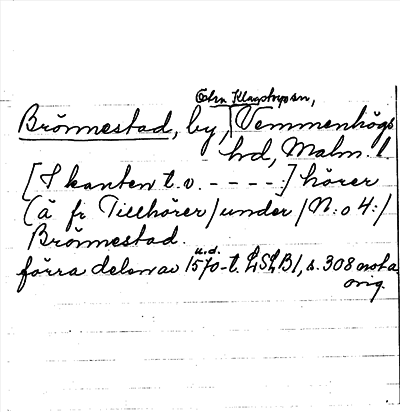 Östra Klagstorps sn,
Brönnestad, by, Vemmenhögs
hd, Malm. l
[I kanten t.v. - - - - -] hörer
(ä fr Tillhörer) under /N:o 4:/
Brönnestad.
u.d.
förra delen av 1570-t. LSLB1, s. 308 nota
orig.